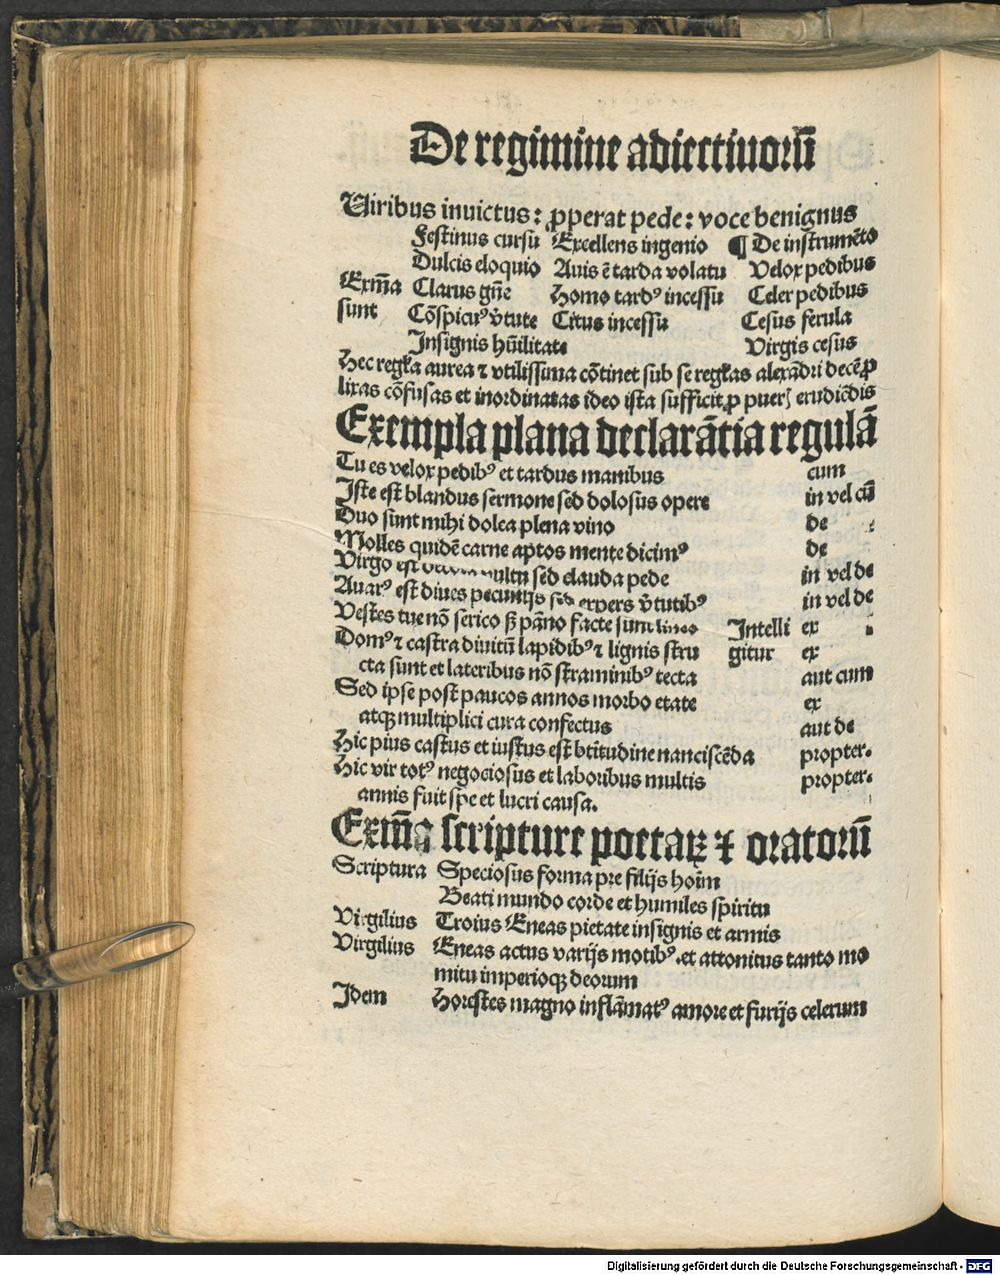 De regimine adiectiuorū
Uiribus inuictus: ꝓperat pede: voce benignus
Festinus cursu Excellens ingenio ¶ De instrumēto
Dulcis eloquio Auis ē tarda volatu Velox pedibus
Exm̄a Clarus gn̄e Homo tardꝰ incessu Celer pedibus
sunt Cōspicuꝰ v̄tute Citus incessu Cesus ferula
Insignis hūilitate Virgis cesus
Hec regła aurea ⁊ vtilissima cōtinet sub se regłas alexādri decē ꝓ
lixas cōfusas et inordinatas ideo ista sufficit ꝓ puerꝭ erudiēdis
Exempla plana declarātia regulā
Tu es velox pedibꝰ et tardus manibus cum
Iste est blandus sermone sed dolosus opere in vel cū
Duo sunt mihi dolea plena vino de
Molles quidē carne aptos mente dicimꝰ de
Virgo est vultu sed clauda pede in vel de
Auarꝰ est diues pecunijs sed expers v̄tutibꝰ in vel de
Vestes tue nō serico sꝫ pāno facte sunt lineo Intelli ex
Domꝰ ⁊ castra diuitū lapidibꝰ ⁊ lignis stru gitur ex
cta sunt et lateribus nō straminibꝰ tecta aut cum
Sed ipse post paucos annos morbo etate ex
atqꝫ multiplici cura confectus aut de
Hic pius castus et iustus est btitudine nanciscēda propter.
Hic vir totꝰ negociosus et laboribus multis propter.
annis fuit spe et lucri causa.
Exm̄a scripture poetaꝝ ⁊ oratorū
Scriptura Speciosus forma pre filijs hoīm
Beati mundo corde et humiles spiritu
Virgilius Troius Eneas pietate insignis et armis
Virgilius Eneas actus varijs motibꝰ .et attonitus tanto mo
mitu imperioqꝫ deorum
Idem Horestes magno inflāmatꝰ amore et furijs celerum
Digitalisierung gefördert durch die Deutsche Forschungsgemeinschaft - DFG